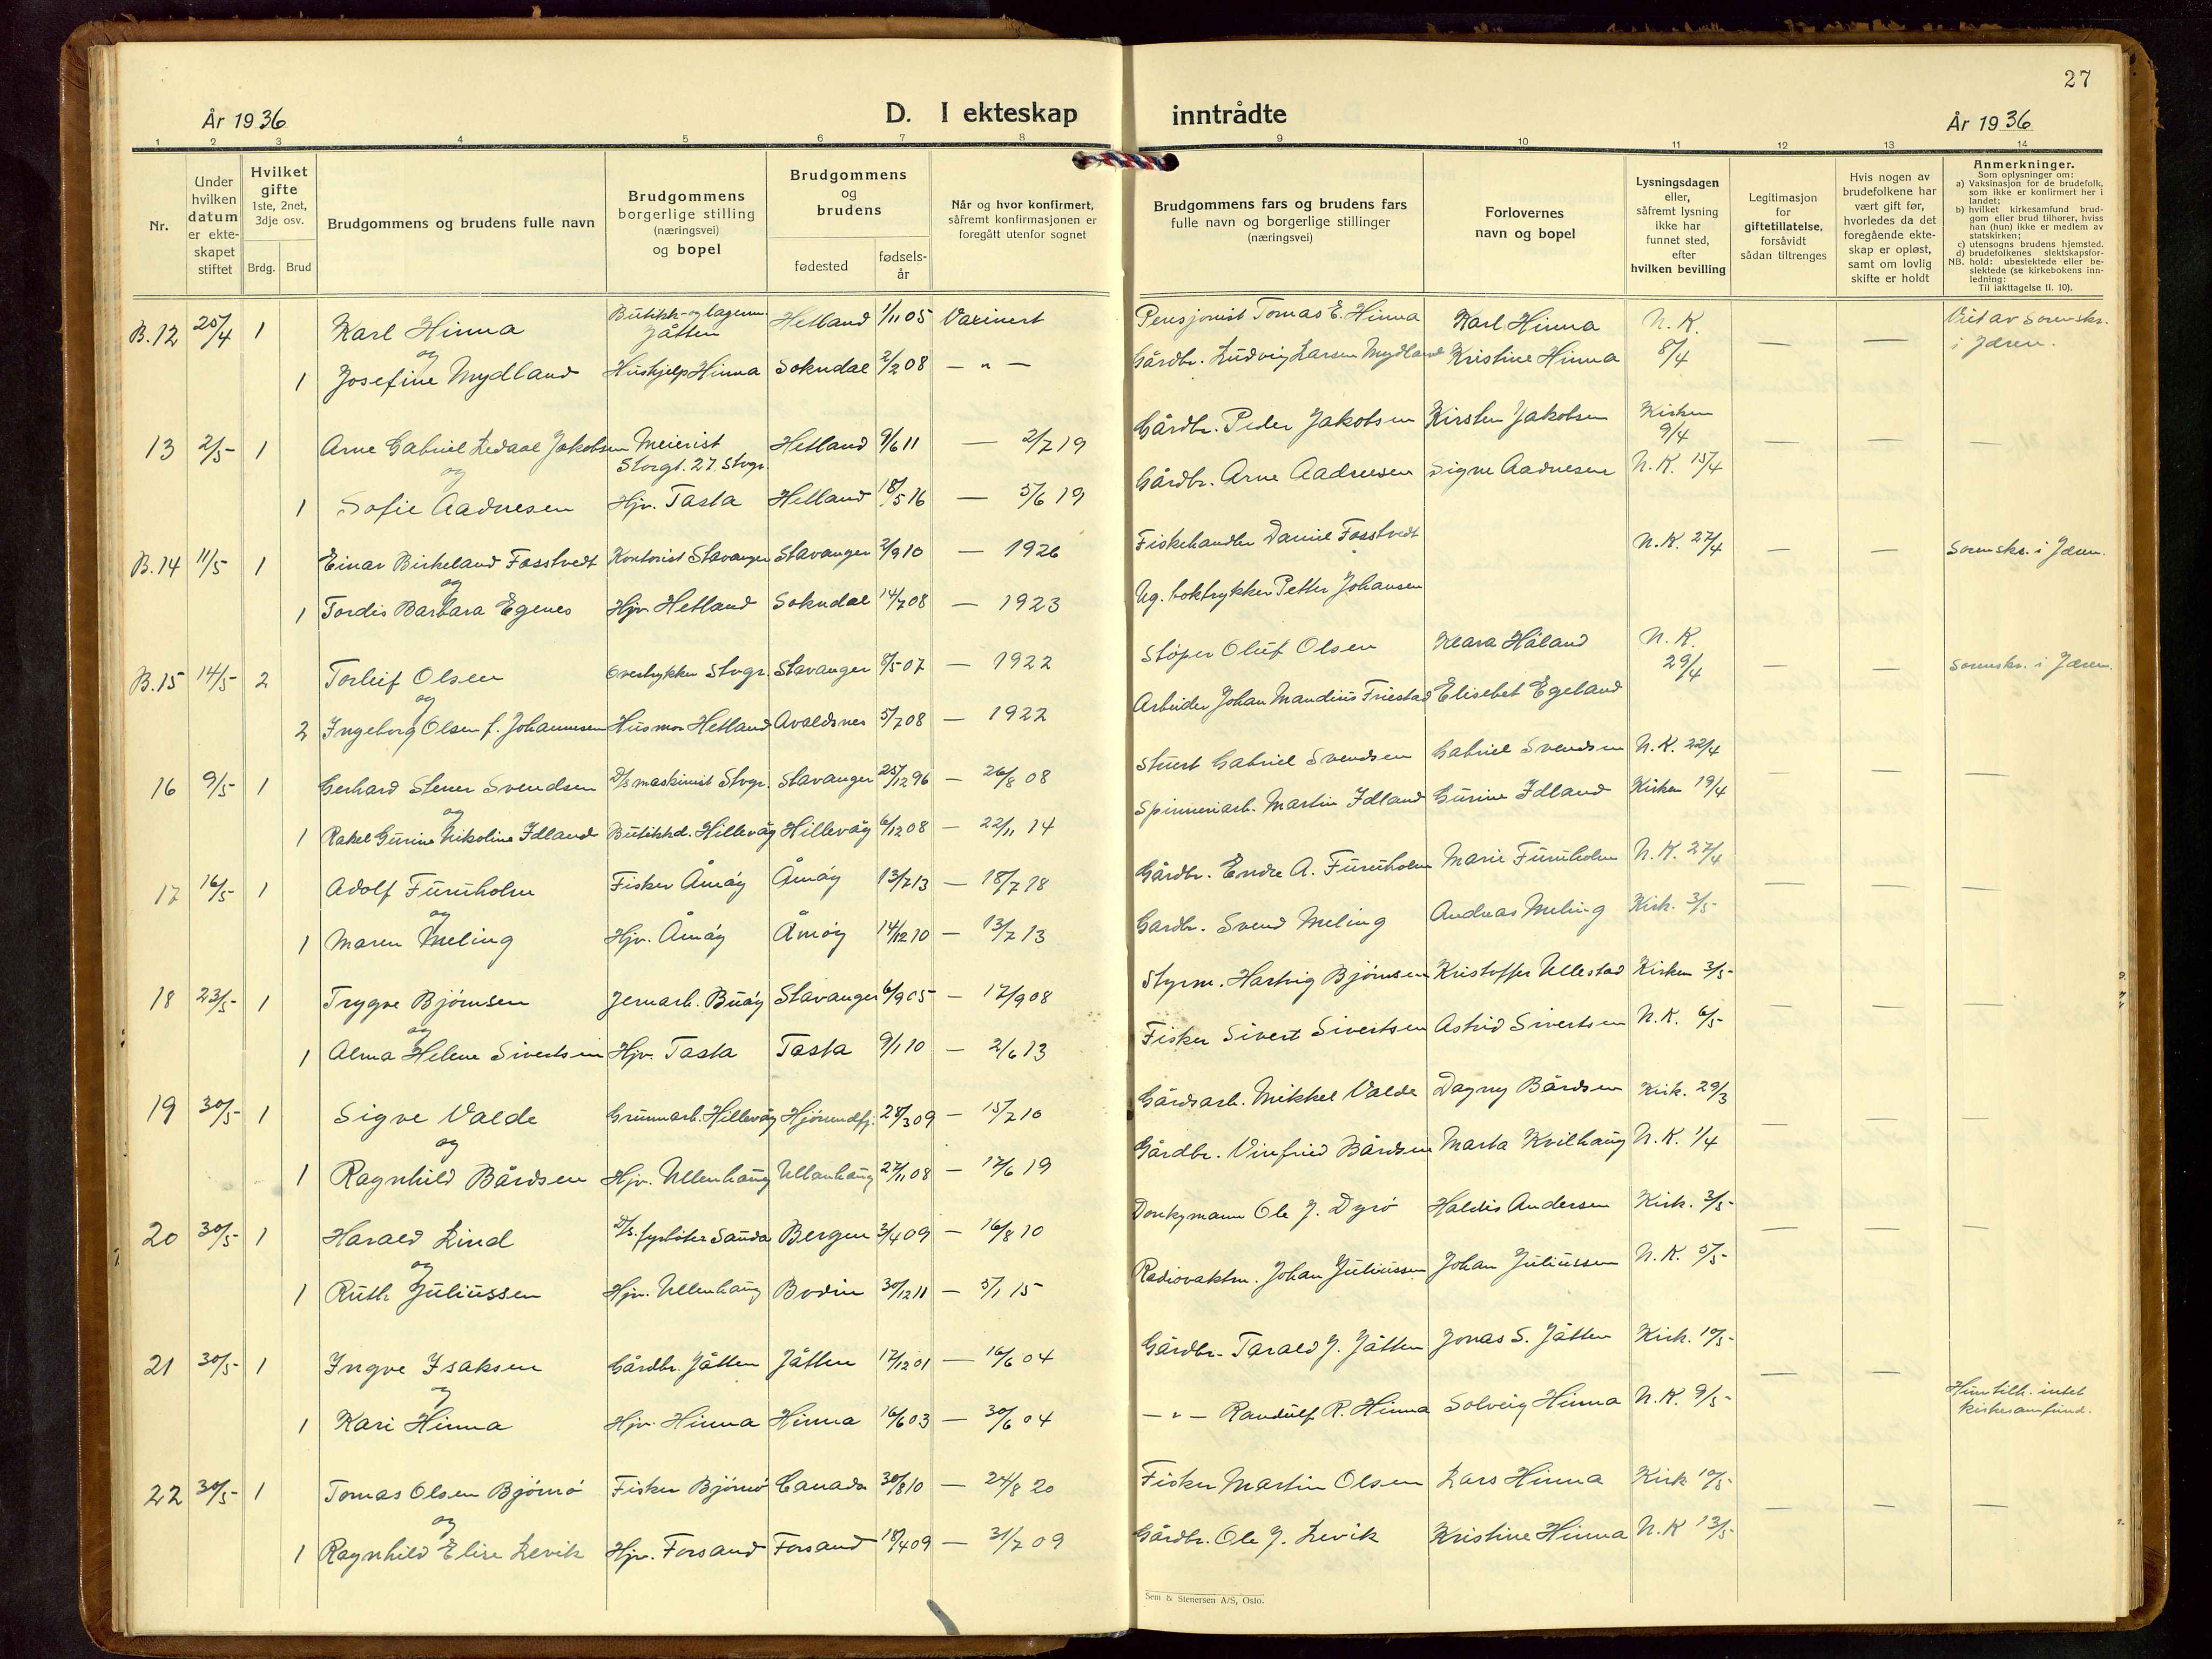 27
År 1936
D. I ekteskap inntrådte
År 1936
1 2 3 4 5 6 7 8 9 10 11 12 13 14
Nr.
Under hvilken datum er ekte-skapet stiftet
Hvilket gifte 1ste, 2net, 3dje osv.
Brdg. Brud
Brudgommens og brudens fulle navn
Brudgommens borgerlige stilling (næringsvei) og bopel
Brudgommens og brudens
fødested
fødsels-år
Når og hvor konfirmert, såfremt konfirmasjonen er foregått utenfor sognet
Brudgommens fars og brudens fars fulle navn og borgerlige stillinger (næringsvei)
Forlovernes navn og bopel
Lysningsdagen eller, såfremt lysning ikke har funnet sted, efter hvilken bevilling
Legitimasjon for giftetillatelse, forsåvidt sådan tiltrenges
Hvis nogen av brudefolkene har vært gift før, hvorledes da det foregående ekte-skap er opløst, samt om lovlig skifte er holdt
Anmerkninger.
Som oplysninger om:
a) Vaksinasjon for de brudefolk, som ikke er konfirmert her i landet;
b) hvilket kirkesamfund brud-gom eller brud tilhører, hviss han (hun) ikke er medlem av statskirken;
c) utensogns brudens hjemsted.
d) brudefolkenes slektskapsfor-hold: ubeslektede eller be-slektede (se kirkebokens inn-ledning:
NB.
Til iakttagelse II. 10).
B.12 25/4 1 Karl Hinna Butikk- og lagerm. Jåtten Hetland 1/11 05 Vaxinert Pensjonist Tomas E. Hinna Karl Hinna N. K. 8/4 — — Viet av sorenskr. i Jæren.
og
1 Josefine Mydland Hushjelp Hinna Sokndal 2/2 08 — " — Gårdbr. Ludvig Larsen Mydland Kristine Hinna
13 2/5 1 Arne Gabriel Ledaal Jakobsen Meierist Storgt. 27. Stvgr. Hetland 9/6 11 — 2/7 19 Gårdbr. Peder Jakobsen Kirsten Jakobsen Kirken 9/4 — — —
og
1 Sofie Aadnesen Hjv. Tasta Hetland 18/5 16 — 5/6 19 Gårdbr. Arne Aadnesen Signe Aadnesen N. K. 15/4
B.14 11/5 1 Einar Birkeland Fosstvedt Kontorist Stavanger Stavanger 2/9 10 — 1926 Fiskehandler Daniel Fosstvedt N. K. 27/4 — — Sorenskr. i Jæren.
og
1 Tordis Barbara Egenes Hjv Hetland Sokndal 14/7 08 — 1923 Ug. boktrykker Petter Johansen
B.15 14/5 2 Torleif Olsen Overtrykker Stvgr. Stavanger 8/5 07 — 1922 Støper Oluf Olsen Klara Håland N. K. 29/4 — — Sorenskr. i Jæren.
og
2 Ingeborg Olsen f. Johannesen Husmor Hetland Avaldsnes 5/7 08 — 1922 Arbeider Johan Mandius Friestad Elisebet Egeland
16 9/5 1 Gerhard Stener Svendsen D/s maskinist Stvgr. Stavanger 25/12 96 — 26/8 08 Stuert Gabriel Svendsen Gabriel Svendsen N. K. 22/4 — — —
og
1 Rakel Gurine Nikoline Idland Butikkd. Hillevåg Hillevåg 6/12 08 — 22/11 14 Spinneriarb. Martin Idland Gurine Idland Kirken 19/4
17 16/5 1 Adolf Furuholm Fisker Åmøy Åmøy 13/7 13 — 18/7 18 Gårdbr. Endre A. Furuholm Marie Furuholm N. K. 27/4 — — —
og
1 Maren Meling Hjv. Åmøy Åmøy 14/12 10 — 13/7 13 Gardbr. Svend Meling Andreas Meling Kirk. 3/5
18 23/5 1 Trygve Bjørnsen Jernarb. Buøy Stavanger 6/9 05 — 17/9 08 Styrm. Hartvig Bjørnsen Kristoffer Ullestad Kirken 3/5 — — —
og
1 Alma Helene Sivertsen Hjv. Tasta Tasta 9/1 10 — 2/6 13 Fisker Sivert Sivertsen Astrid Sivertsen N. K. 6/5
19 30/5 1 Sigve Valde Grunnarb. Hillevåg Hjørundfj. 28/3 09 — 15/7 10 Gårdsarb. Mikkel Valde Dagny Bårdsen Kirk. 29/3 — — —
og
1 Ragnhild Bårdsen Hjv. Ullenhaug Ullanhaug 27/11 08 — 17/6 19 Gårdbr. Vinfried Bårdsen Marta Kvilhaug N. K. 1/4
20 30/5 1 Harald Lind D/s. fyrbøter Sauda Bergen 3/4 09 — 16/8 10 Donkymann Ole J. Dyrø Haldis Andersen Kirk. 3/5 — — —
og
1 Ruth Juliussen Hjv. Ullenhaug Bodin 30/12 11 — 5/1 15 Radiovaktm. Johan Juliussen Johan Juliussen N. K. 5/5
21 30/5 1 Ingve Isaksen Gårdbr. Jåtten Jåtten 17/12 01 — 16/6 04 Gårdbr. Tarald J. Jåtten Jonas S. Jåtten Kirk. 10/5 — — Hun tilh. intet kirkesamfund.
og
1 Kari Hinna Hjv. Hinna Hinna 16/6 03 — 30/6 04 — " — Randulf R. Hinna Solveig Hinna N. K. 9/5
22 30/5 1 Tomas Olsen Bjørnø Fisker Bjørnø Canada 30/8 10 — 24/8 20 Fisker Martin Olsen Lars Hinna Kirk 10/5 — — —
og
1 Ragnhild Elise Levik Hjv. Forsand Forsand 18/4 09 — 31/7 09 Gårdbr. Ole J. Levik Kristine Hinna N. K 13/5
Sem & Stenersen A/S, Oslo.